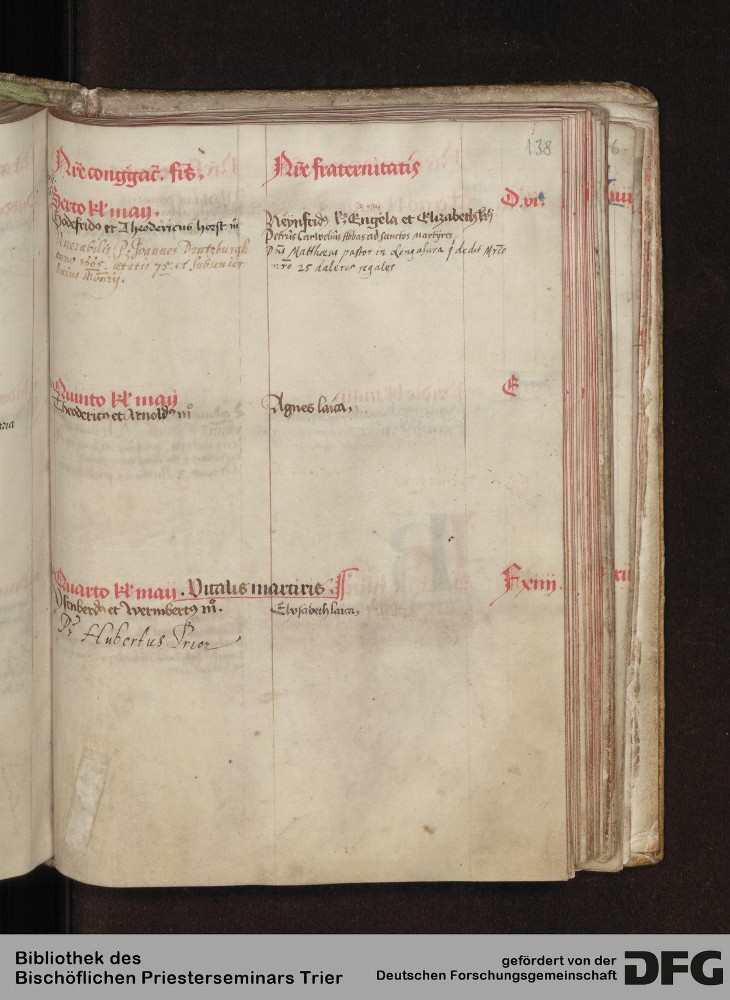 138
Nr̄e congḡgac̄. fr̄s. Nr̄e fraternitatis
Sexto kl̄ maij. D. vi.
Godefrid9 et Theodericus horst m̄
Venerabilis P. Joannes Drutzburgh
anno 1665. ętatis 75. et Subsenior
huius Mon̄rij.
Reynfrid9 Engela et Elizabeth
Petrus Carwelius Abbas ad Sanctos Martyres
Dn̄s Matthæus pastor in Longasura dedit Mr̄io
nr̄o 25 daleros regales
Quinto kl̄ maij E
Theoderic9 et Arnold9 m̊
Agnes laica.
Quarto kl̄ maij. Vitalis martiris. F xiiij.
Ysenberd9 et Wermbert9 m̊.
Elyzabeth laica.
P. Hubertus Prior
Bibliothek des
Bischöflichen Priesterseminars Trier
gefördert von der
Deutschen Forschungsgemeinschaft
DFG